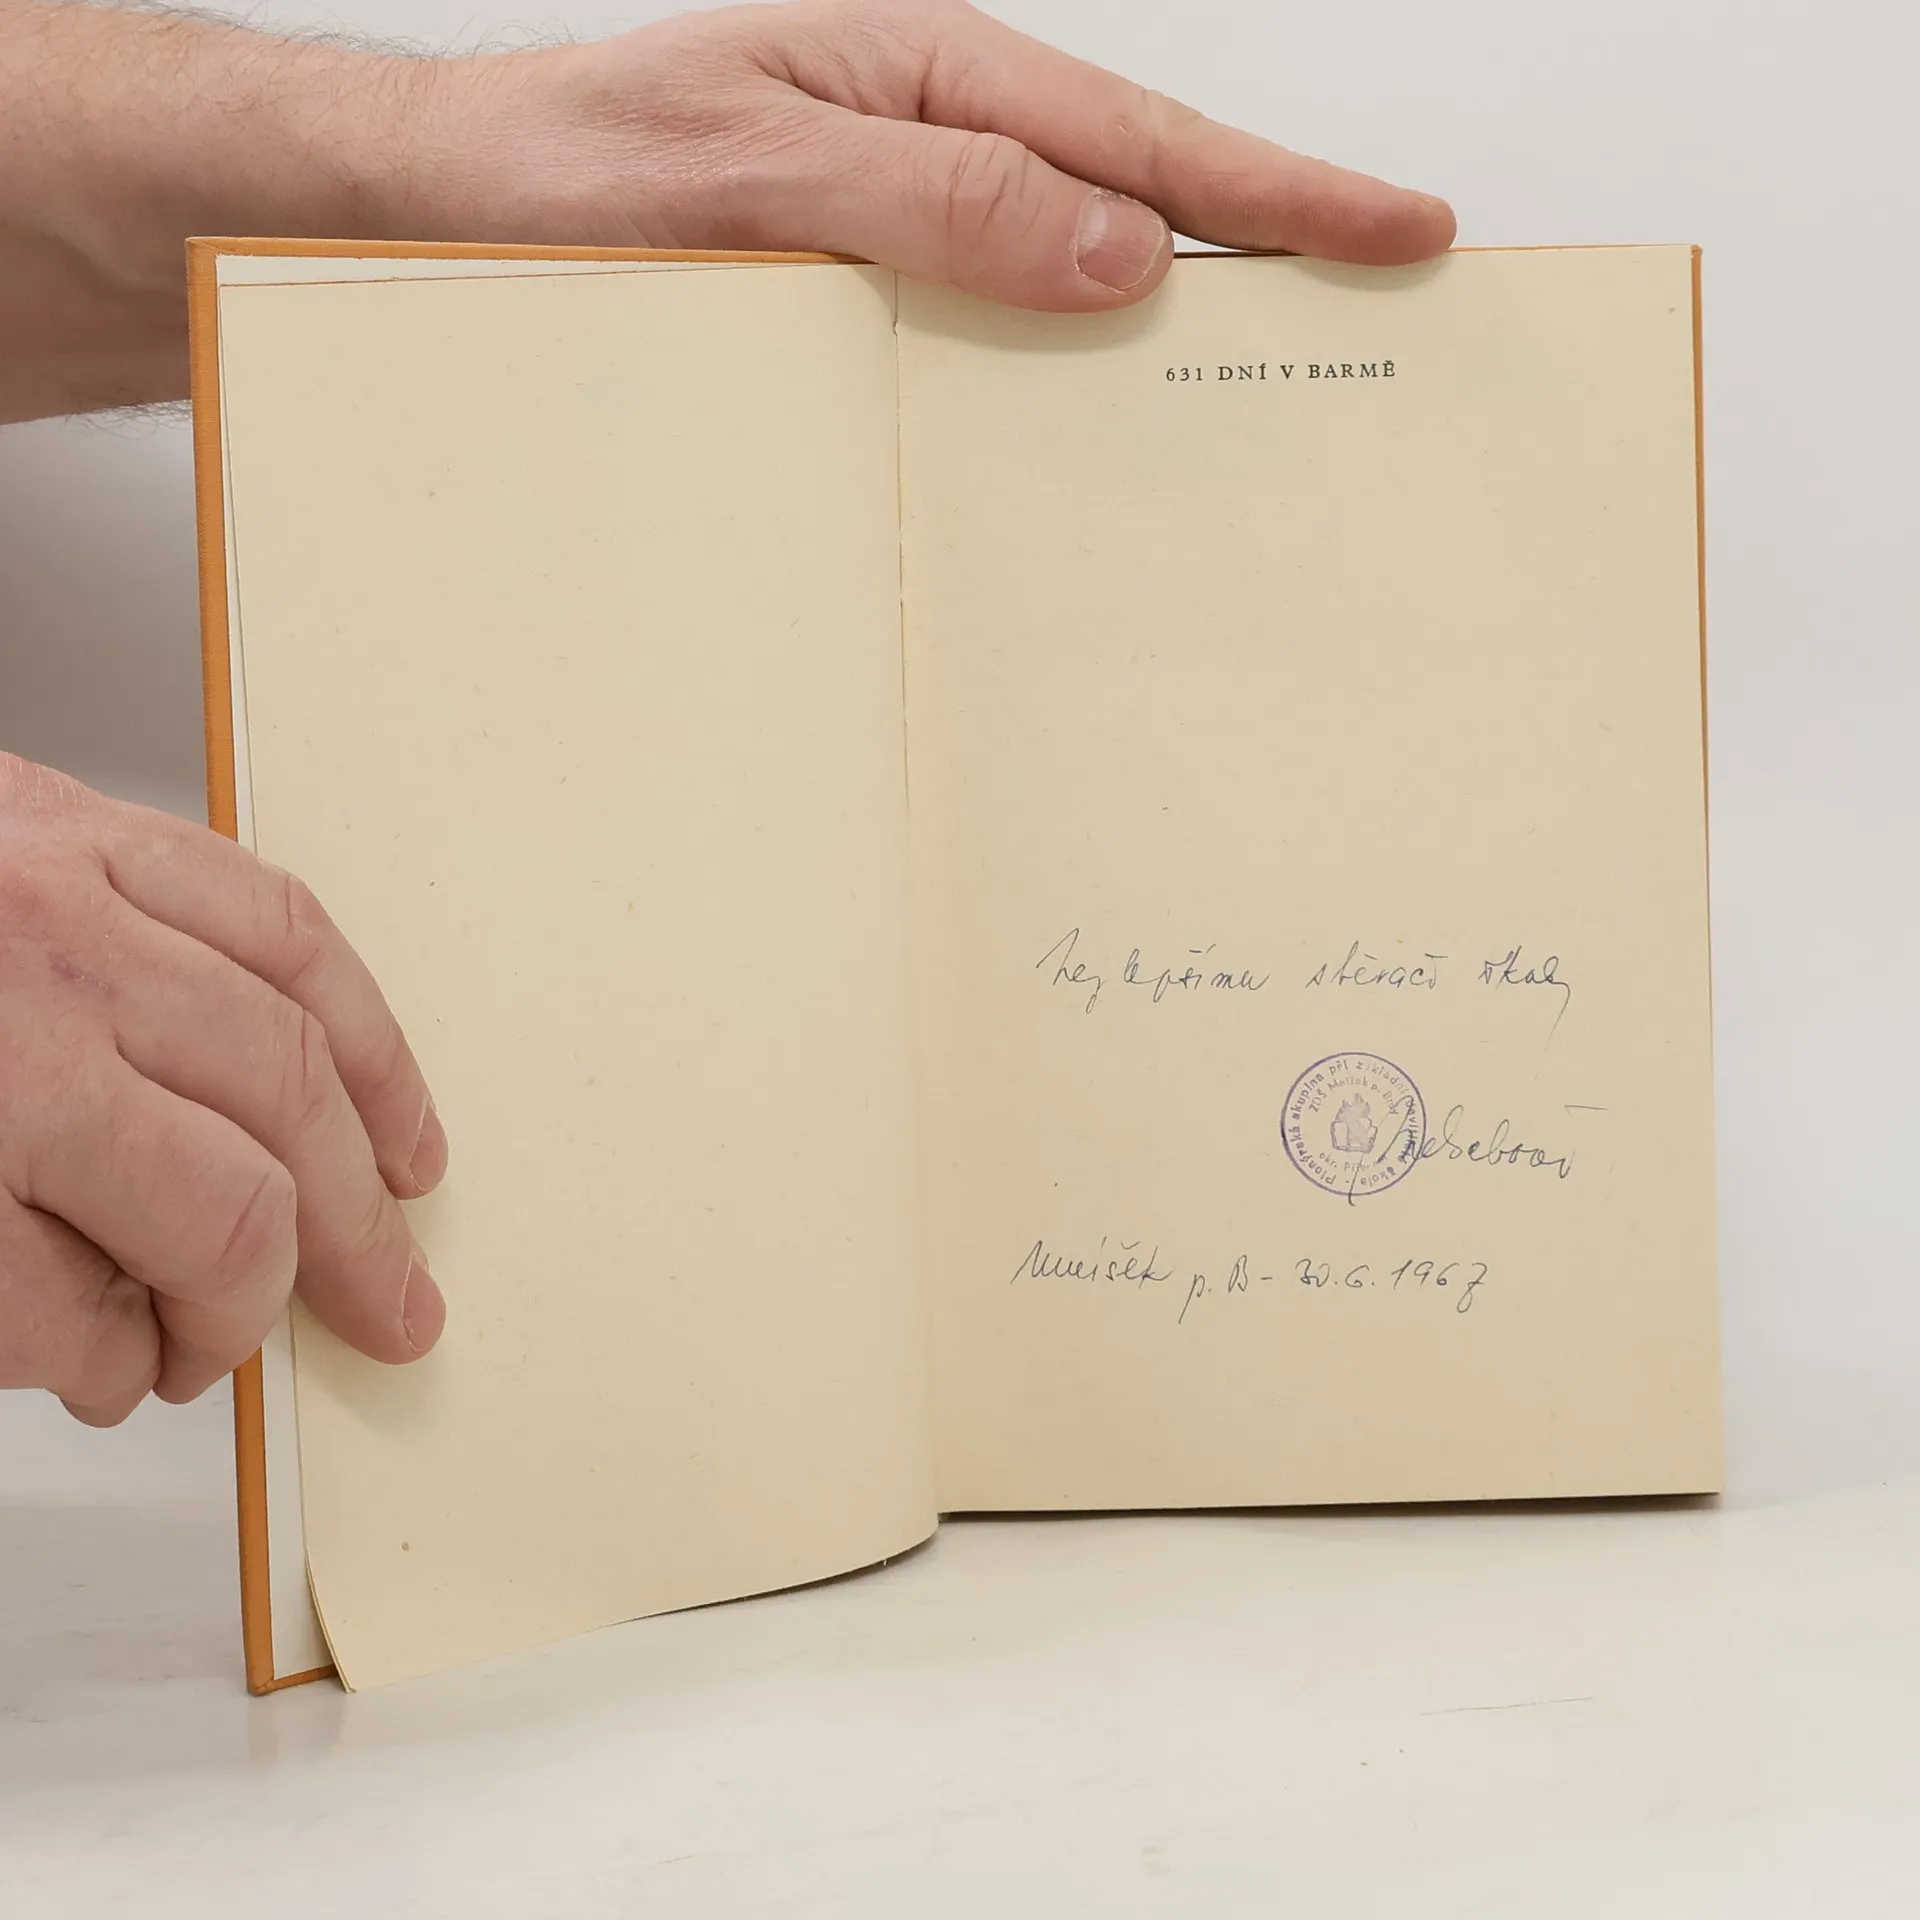 631 DNÍ V BARMĚ
Nejlepšímu sběrači školy
Pionýrská skupina při základní devítileté škole -
ZDŠ Mníšek p. Brdy
okr. Příbram
Mníšek p. B - 30. 6. 1967